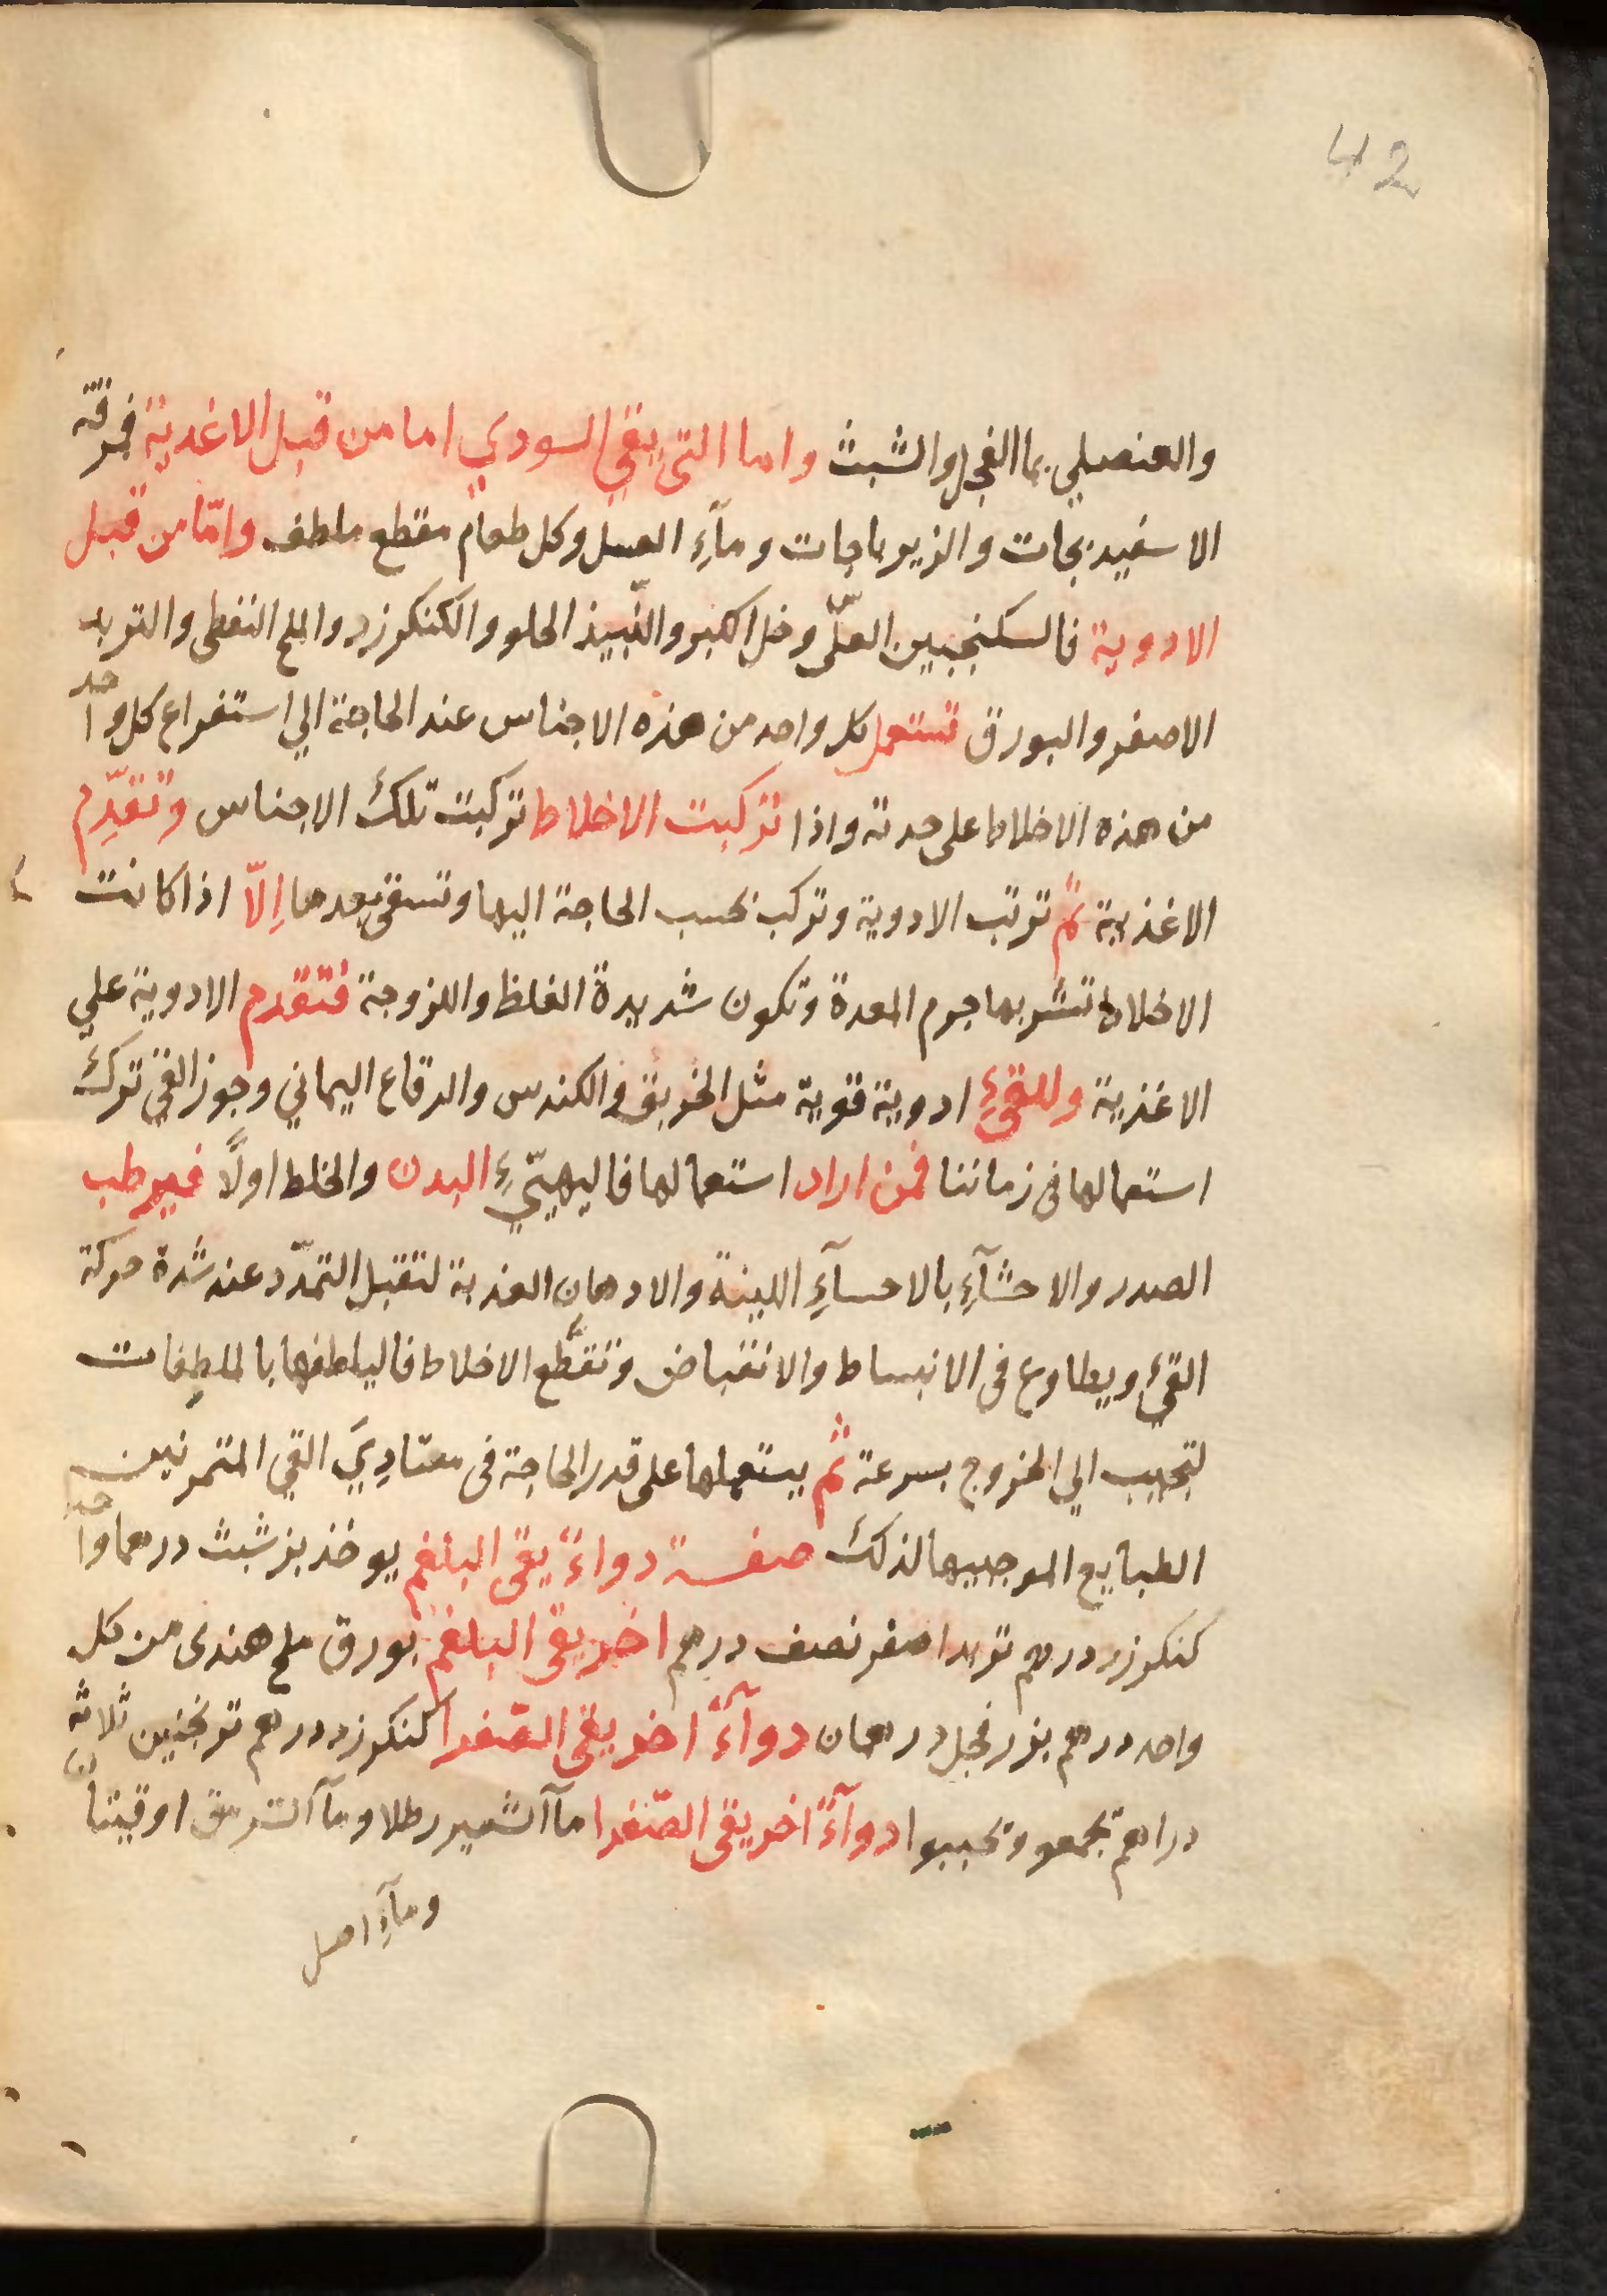 42
والعنصلي بما الفجل والشبث واما التى يقي السودي اما من قبل الاغدية فمرقة
الاسفيدبجات والزيرباجات ومآءِ العسل وكل طعام مقطع ملطف وامّا من قبل
الادوية فالسكنجبين العلّى وخل الكبر والنّبيذ الحلو والكنكرزد والملح النفطى والتربد
الاصفر والبورق تستعمل كل واحد من هذه الاجناس عند الحاجة الي استفراع كل واحد
من هذه الاخلاط على حدته واذا تركبت الاخلاط تركبت تلك الاجناس وتقدِّم
الاغذية ثم ترتب الادوية وتركب بحسب الحاجة اليها وتسقى بعدها اِلّا اذا كانت
الاخلاط تشربها جرم المعدة وتكون شديدة الغلظ واللزوجة فتقدم الادوية علي
الاغذية وللقئِ ادوية قوية مثل الخربق والكندس والرقاع اليماني وجوز القي ترك
استعمالها فى زماننا فمن اراد استعمالها فاليهيّيءِ البدن والخلط اولًا فيرطب
الصدر والاحشآءِ بالاحسآءِ اللينة والادهان العذبة لتقبل التمدّد عند شدة حركة
القيء ويطاوع فى الانبساط والانقباض وتقطَّع الاخلاط فاليلطفها بالملطِفات
لتجيب الي الخروج بسرعة ثم يستعملها على قدر الحاجة فى معتادِيَ القي المتمرنين
الطبايع الموجبيها لذلك صفة دواءً يقى البلغم يوخذ بزر شبث درهما واحد
كنكرزد درهم تربد اصفر نصف درهم اخر يقى البلغم بورق ملح هندى من كل
واحد درهم بزر فجل درهمان دوآءً اخر يقى الصّفرا كنكرزد درهم ترنجنين ثلاثة
دراهم تجمعو وتحببوا دوآءً اخر يقى الصّفرا مآ الشعير رطلا ومآ السرمق اوقيتان
ومآءِ اصل